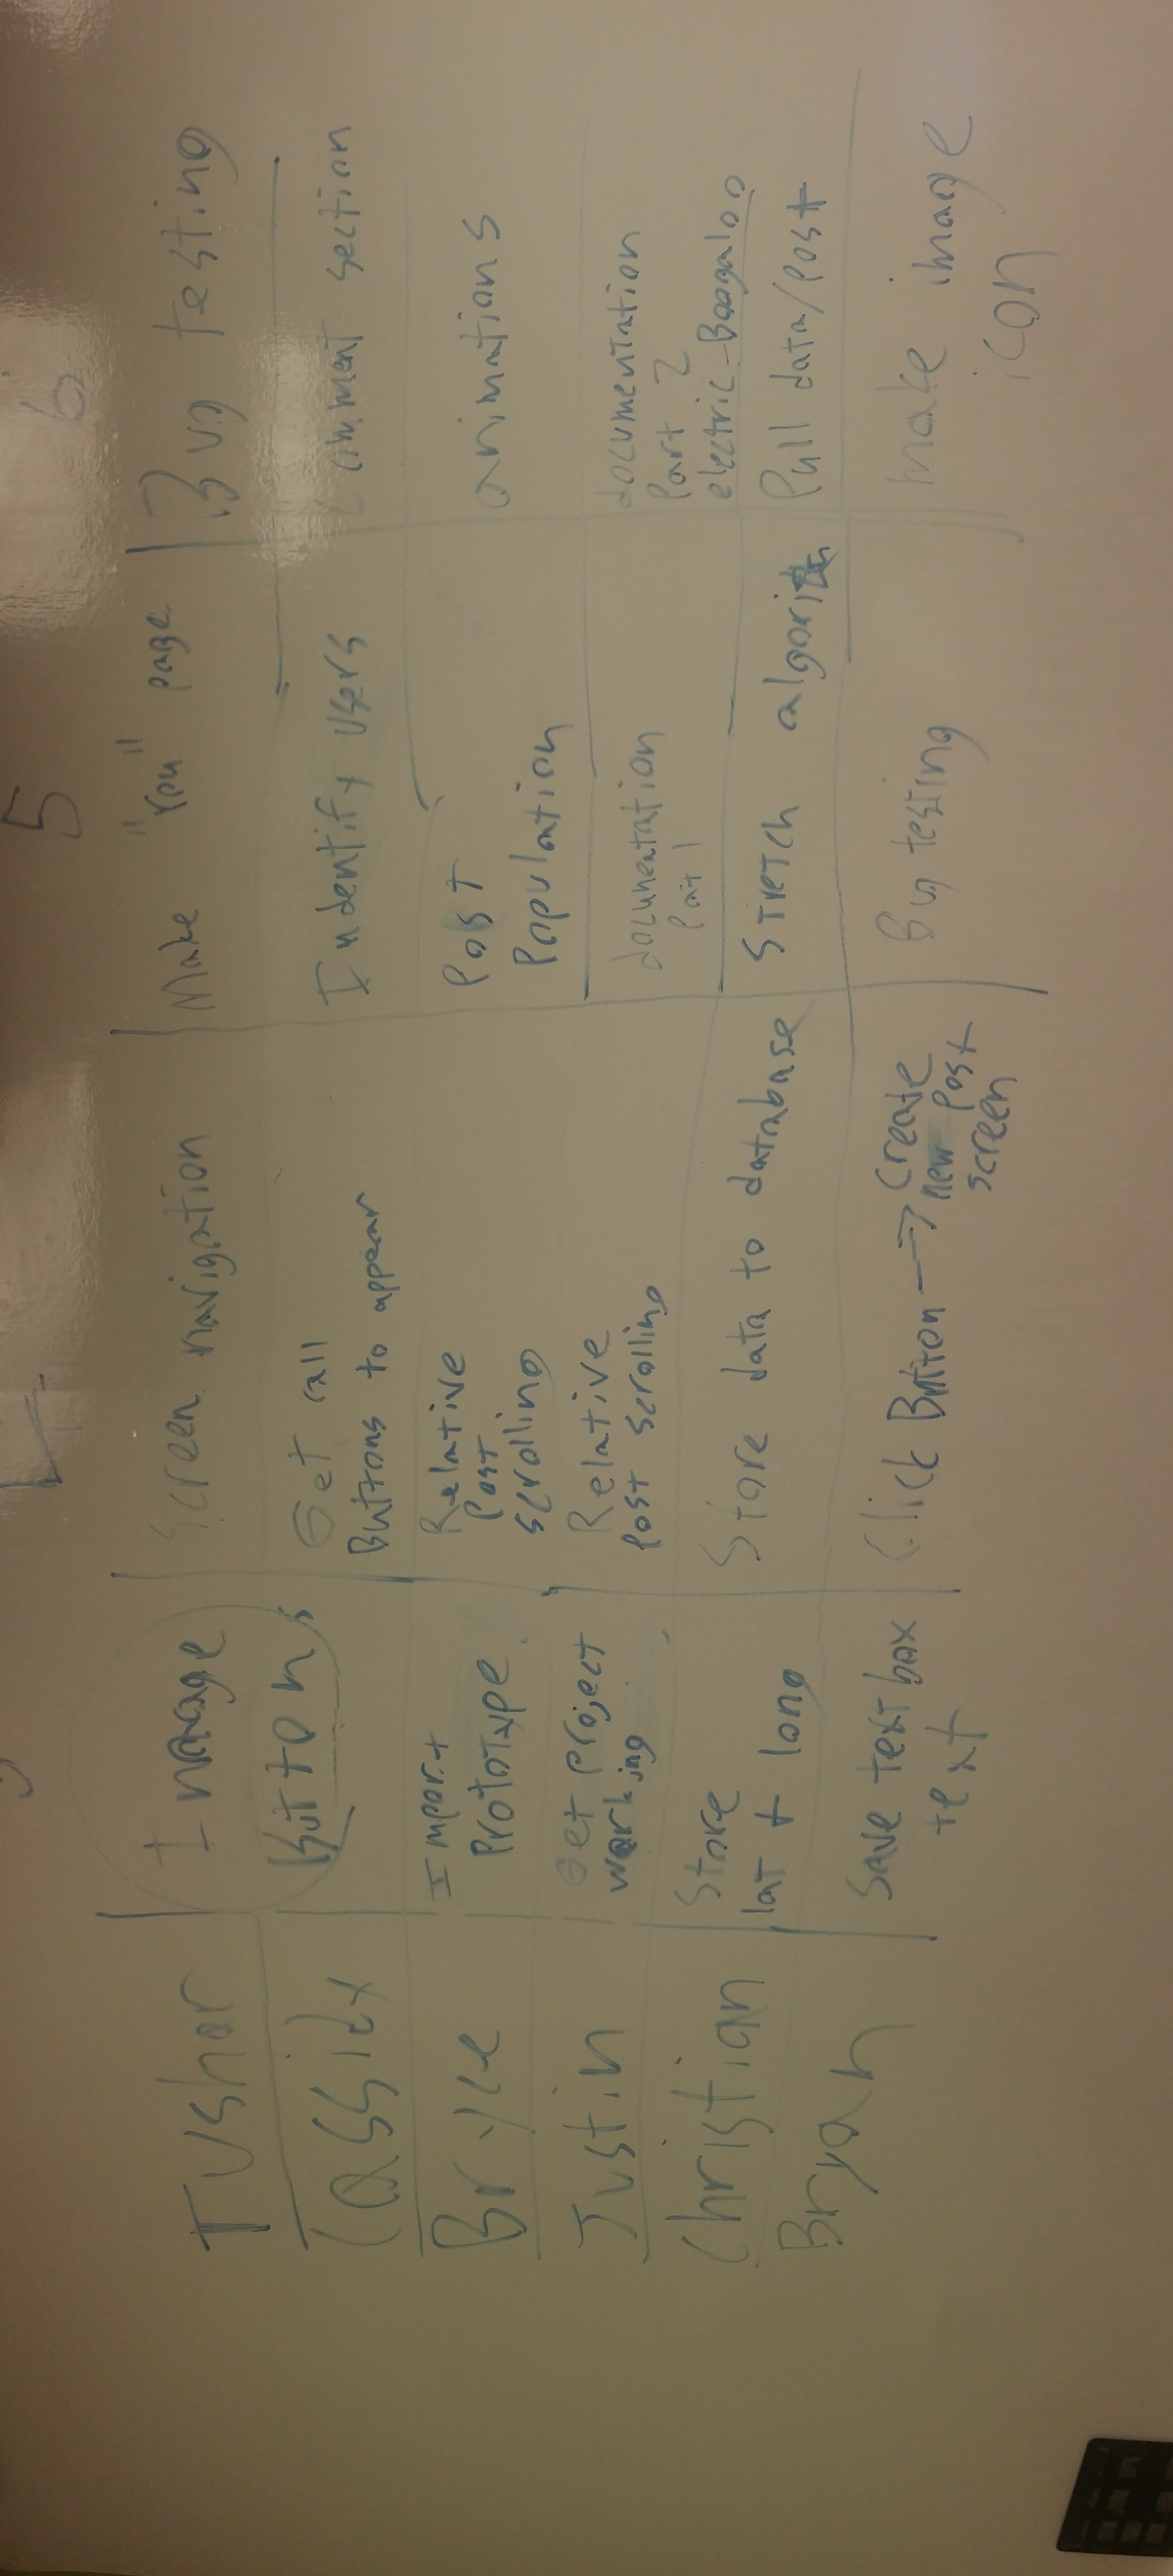 5 6
Tushar Image Buttons Screen navigation Make "You" page Bug testing
Cassidy Get all Buttons to appear Indentify users Comment section
Bryce Import Prototype Relative Post scrolling Post Population animations
Justin Get project working Relative Post scrolling documentation Part 1 documentation Part 2 electric Boogaloo
Christian Store lat + long Store data to database Stretch Pull data/post
Bryan Save textbox text Click Button → create new post screen Bug testing make image icon